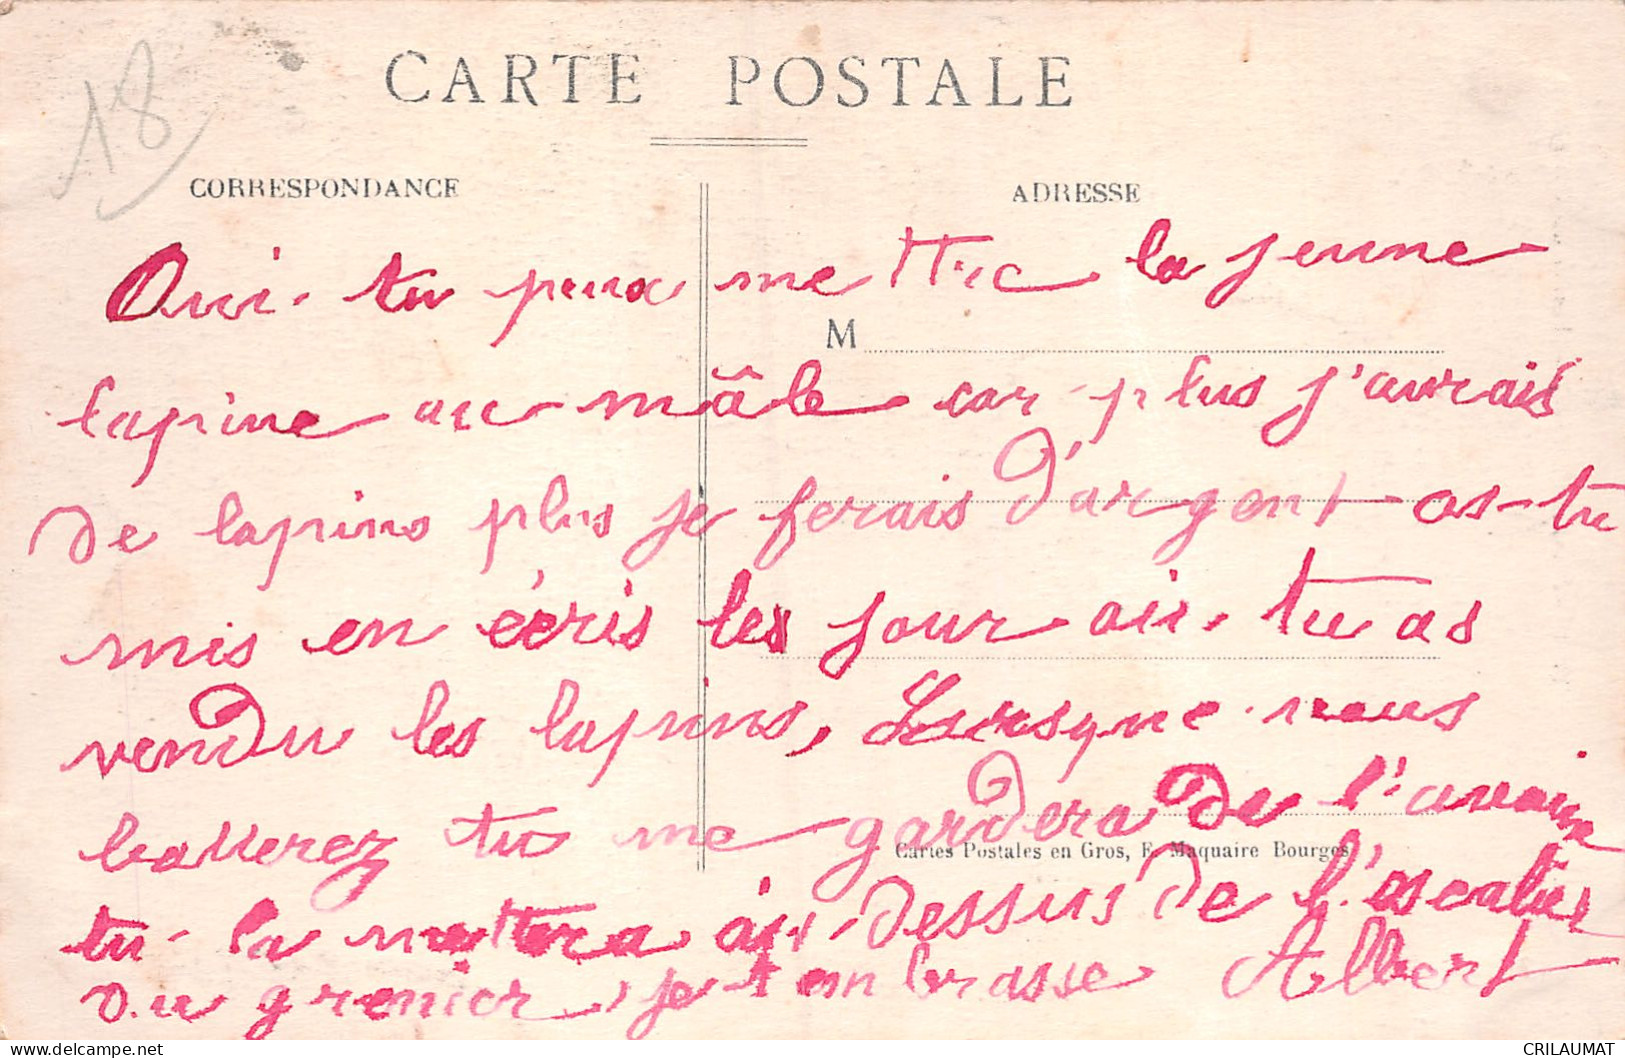 18
CARTE POSTALE
CORRESPONDANCE
ADRESSE
Oui. tu peux mettre la jeune
M
lapine au mâle car plus j'aurais
de lapins plus je ferais d'argent as-tu
mis en écris les jour où tu as
vendu les lapins, Lorsque vous
batterez tu me gardera de l'avoine
Cartes Postales en Gros, E. Maquaire Bourges
tu la mettra au dessus de l'escalier
du grenier, je t'embrasse Albert
delcampe.net
CRILAUMAT